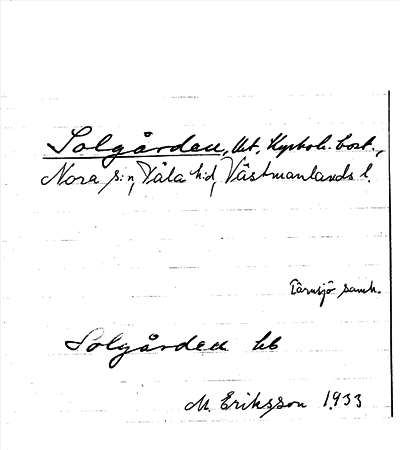 Solgården, lht, Kyrkoh. bost.,
Nora s:n, Våla h:d, Västmanlands l.
Tärnsjö samh.
Solgården hb
M. Eriksson 1933